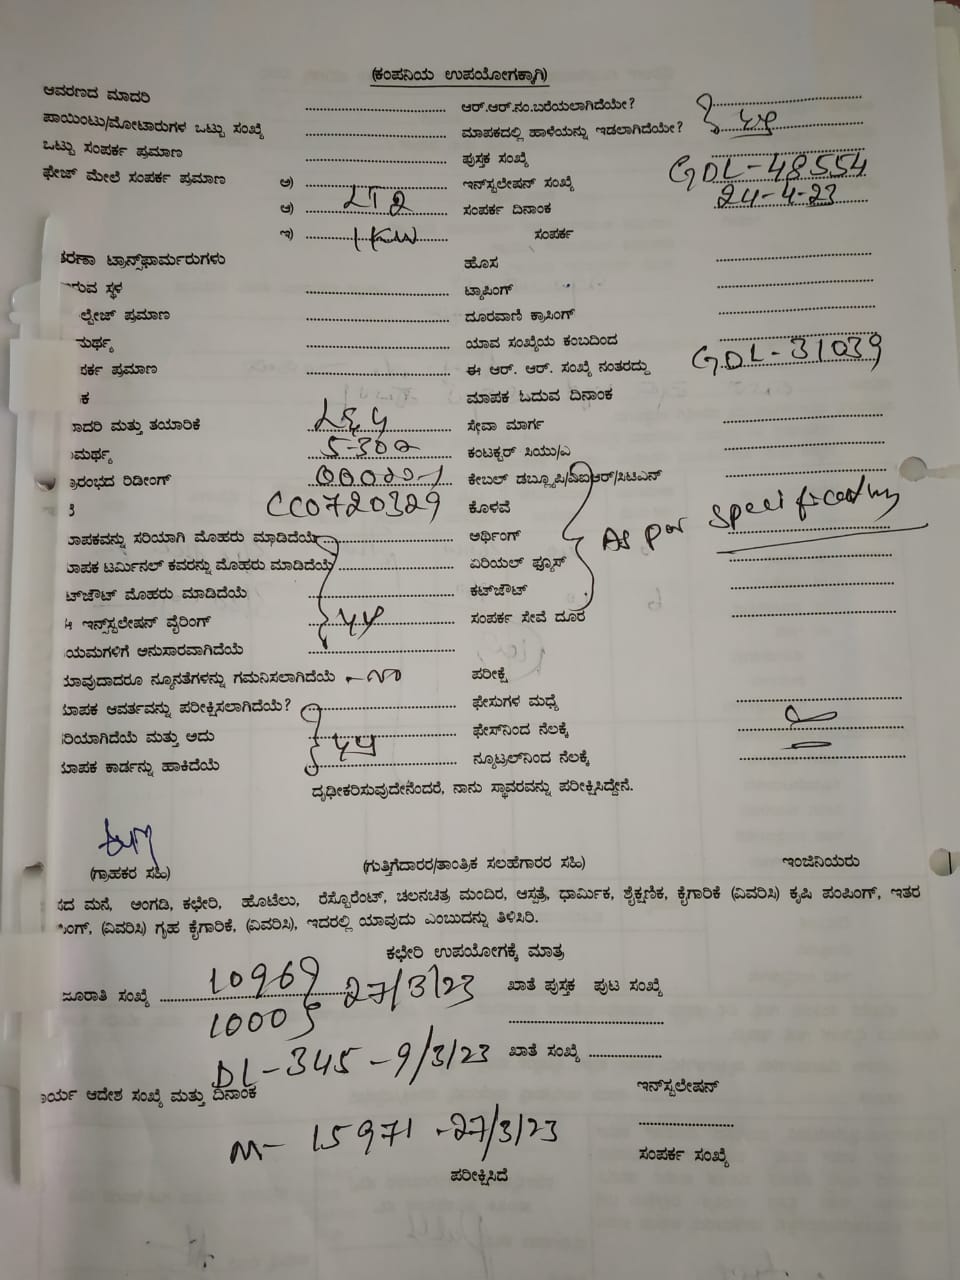 (ಕಂಪನಿಯ ಉಪಯೋಗಕ್ಕಾಗಿ)
ಆವರಣದ ಮಾದರಿ ಆರ್.ಆರ್.ನಂ.ಬರೆಯಲಾಗಿದೆಯೇ?
ಪಾಯಿಂಟು/ಮೋಟಾರುಗಳ ಒಟ್ಟು ಸಂಖ್ಯೆ ಮಾಪಕದಲ್ಲಿ ಹಾಳೆಯನ್ನು ಇಡಲಾಗಿದೆಯೇ?
ಒಟ್ಟು ಸಂಪರ್ಕ ಪ್ರಮಾಣ ಪುಸ್ತಕ ಸಂಖ್ಯೆ
ಫೇಜ್ ಮೇಲೆ ಸಂಪರ್ಕ ಪ್ರಮಾಣ ಅ) ಇನ್‌ಸ್ಟಲೇಷನ್ ಸಂಖ್ಯೆ GDL-48554
ಆ) LT2 ಸಂಪರ್ಕ ದಿನಾಂಕ 24-4-23
ಇ) 1KW ಸಂಪರ್ಕ
ತರಣಾ ಟ್ರಾನ್ಸ್‌ಫಾರ್ಮರುಗಳು ಹೊಸ
ರುವ ಸ್ಥಳ ಟ್ಯಾಪಿಂಗ್
ಲ್ಟೇಜ್ ಪ್ರಮಾಣ ದೂರವಾಣಿ ಕ್ರಾಸಿಂಗ್
ಮರ್ಥ್ಯ ಯಾವ ಸಂಖ್ಯೆಯ ಕಂಬದಿಂದ
ಪರ್ಕ ಪ್ರಮಾಣ ಈ ಆರ್. ಆರ್. ಸಂಖ್ಯೆ ನಂತರದ್ದು GDL-31039
ಕ ಮಾಪಕ ಓದುವ ದಿನಾಂಕ
ಾದರಿ ಮತ್ತು ತಯಾರಿಕೆ L&G ಸೇವಾ ಮಾರ್ಗ
ಾಮರ್ಥ್ಯ 5-30a ಕಂಟಕ್ಟರ್ ಸಿಯು/ಎ
್ರಾರಂಭದ ರಿಡಿಂಗ್ ಕೇಬಲ್ ಡಬ್ಲ್ಯೂಪಿ/ವಿಐಆರ್/ಸಿಟಿಎನ್
CC0720329 ಕೊಳವೆ
ಾಪಕವನ್ನು ಸರಿಯಾಗಿ ಮೊಹರು ಮಾಡಿದೆಯೆ ಅರ್ಥಿಂಗ್ As per specification
ಾಪಕ ಟರ್ಮಿನಲ್ ಕವರನ್ನು ಮೊಹರು ಮಾಡಿದೆಯೆ ಏರಿಯಲ್ ಫ್ಯೂಸ್
ಟ್‌ಔಟ್ ಮೊಹರು ಮಾಡಿದೆಯೆ ಕಟ್‌ಔಟ್
ಇನ್ಸ್‌ಸ್ಟಲೇಷನ್ ವೈರಿಂಗ್ ಸಂಪರ್ಕ ಸೇವೆ ದೂರ
ಯಮಗಳಿಗೆ ಅನುಸಾರವಾಗಿದೆಯೆ
ಾವುದಾದರೂ ನ್ಯೂನತೆಗಳನ್ನು ಗಮನಿಸಲಾಗಿದೆಯೆ -No ಪರೀಕ್ಷೆ
ಾಪಕ ಆವರ್ತವನ್ನು ಪರೀಕ್ಷಿಸಲಾಗಿದೆಯೆ? ಫೇಸುಗಳ ಮಧ್ಯೆ
ರಿಯಾಗಿದೆಯೆ ಮತ್ತು ಅದು ಫೇಸ್‌ನಿಂದ ನೆಲಕ್ಕೆ
ಾಪಕ ಕಾರ್ಡನ್ನು ಹಾಕಿದೆಯೆ ನ್ಯೂಟ್ರಲ್‌ನಿಂದ ನೆಲಕ್ಕೆ
ದೃಢೀಕರಿಸುವುದೇನೆಂದರೆ, ನಾನು ಸ್ಥಾವರವನ್ನು ಪರೀಕ್ಷಿಸಿದ್ದೇನೆ.
(ಗ್ರಾಹಕರ ಸಹಿ) (ಗುತ್ತಿಗೆದಾರರ/ತಾಂತ್ರಿಕ ಸಲಹೆಗಾರರ ಸಹಿ) ಇಂಜಿನಿಯರು
ಸದ ಮನೆ, ಅಂಗಡಿ, ಕಛೇರಿ, ಹೊಟೆಲು, ರೆಸ್ಟೊರೆಂಟ್, ಚಲನಚಿತ್ರ ಮಂದಿರ, ಆಸ್ಪತ್ರೆ, ಧಾರ್ಮಿಕ, ಶೈಕ್ಷಣಿಕ, ಕೈಗಾರಿಕೆ (ವಿವರಿಸಿ) ಕೃಷಿ ಪಂಪಿಂಗ್, ಇತರ
ಪಿಂಗ್, (ವಿವರಿಸಿ) ಗೃಹ ಕೈಗಾರಿಕೆ, (ವಿವರಿಸಿ), ಇದರಲ್ಲಿ ಯಾವುದು ಎಂಬುದನ್ನು ತಿಳಿಸಿರಿ.
ಕಛೇರಿ ಉಪಯೋಗಕ್ಕೆ ಮಾತ್ರ
ಜೂರಾತಿ ಸಂಖ್ಯೆ 10969 27/3/23 ಖಾತೆ ಪುಸ್ತಕ ಪುಟ ಸಂಖ್ಯೆ
10005
DL-345-9/3/23 ಖಾತೆ ಸಂಖ್ಯೆ
ಾರ್ಯ ಆದೇಶ ಸಂಖ್ಯೆ ಮತ್ತು ದಿನಾಂಕ ಇನ್‌ಸ್ಟಲೇಷನ್
M-15971-27/3/23
ಸಂಪರ್ಕ ಸಂಖ್ಯೆ
ಪರೀಕ್ಷಿಸಿದೆ